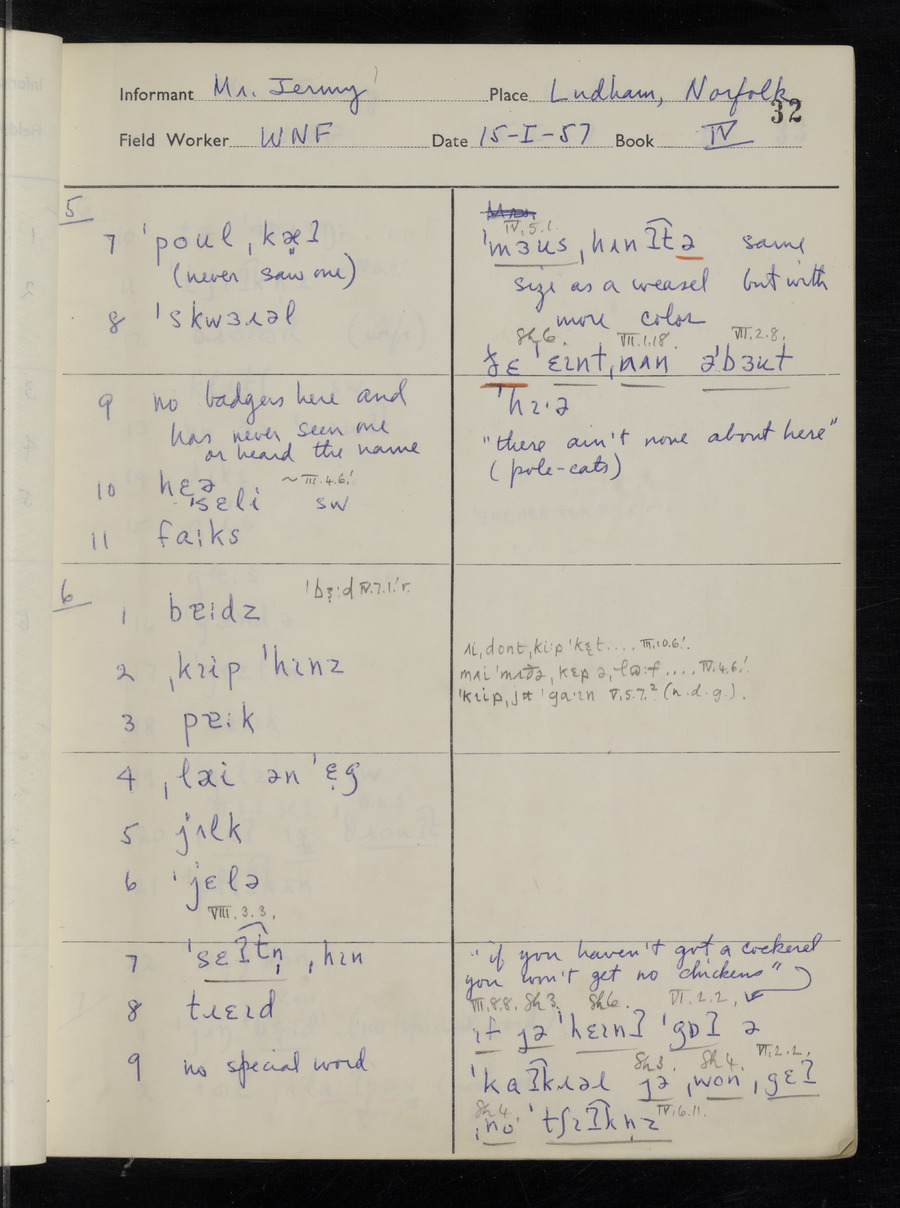 Informant Mr. Jermy Place Ludham, Norfolk
32
Field Worker WNF Date 15-I-57 Book IV
5
7 ˈpoul ˌkæʔ
(never saw one)
8 ˈskwɜɹəl
9 no badgers here and
has never seen one
or heard the name
10 hɛə ~ III.4.6.!
ˈsɛli SW
11 faːks
IV.5.1.
ˈmɜus ˌhʌnʔtə same
size as a weasel but with
more color
Sh6. VII.1.18. VII.2.8.
ðɛ ˈɛɪnt ˌnʌn əˈbɜut
ˈhɪ·ə
"there ain't none about here"
(pole-cats)
6
ˈbɜːd IV.7.1.! r.
1 bɐːdz
2 ˌkɪip ˈhɪnz
3 pɐːk
4 ˌlæi ən ˈɛg
5 jʌlk
6 ˈjɛlə
VIII.3.3.
7 ˈsɛʔtn ˌhɪn
8 tɹɛɪd
9 no special word
ʌi ˌdont ˌkiːp ˈkɛt.... III.10.6.!
mʌi ˈmʌðə ˌkɛp ə ˌlɒːf.... IV.4.6.!
ˈkɪip ˌjɵ ˈgaːɪn V.5.7.² (n.d.g.).
"if you haven't got a cockerel
you won't get no chickens"
III.8.8. Sh3. Sh6. VI.2.2.
ɪf jə ˈhɛɪnʔ ˈgɒʔ ə
Sh3. Sh4. VI.2.2.
ˈkaʔkɹəl jə ˌwon ˌgɛʔ
Sh4. IV.6.11.
ˌno ˈtʃɪʔknz